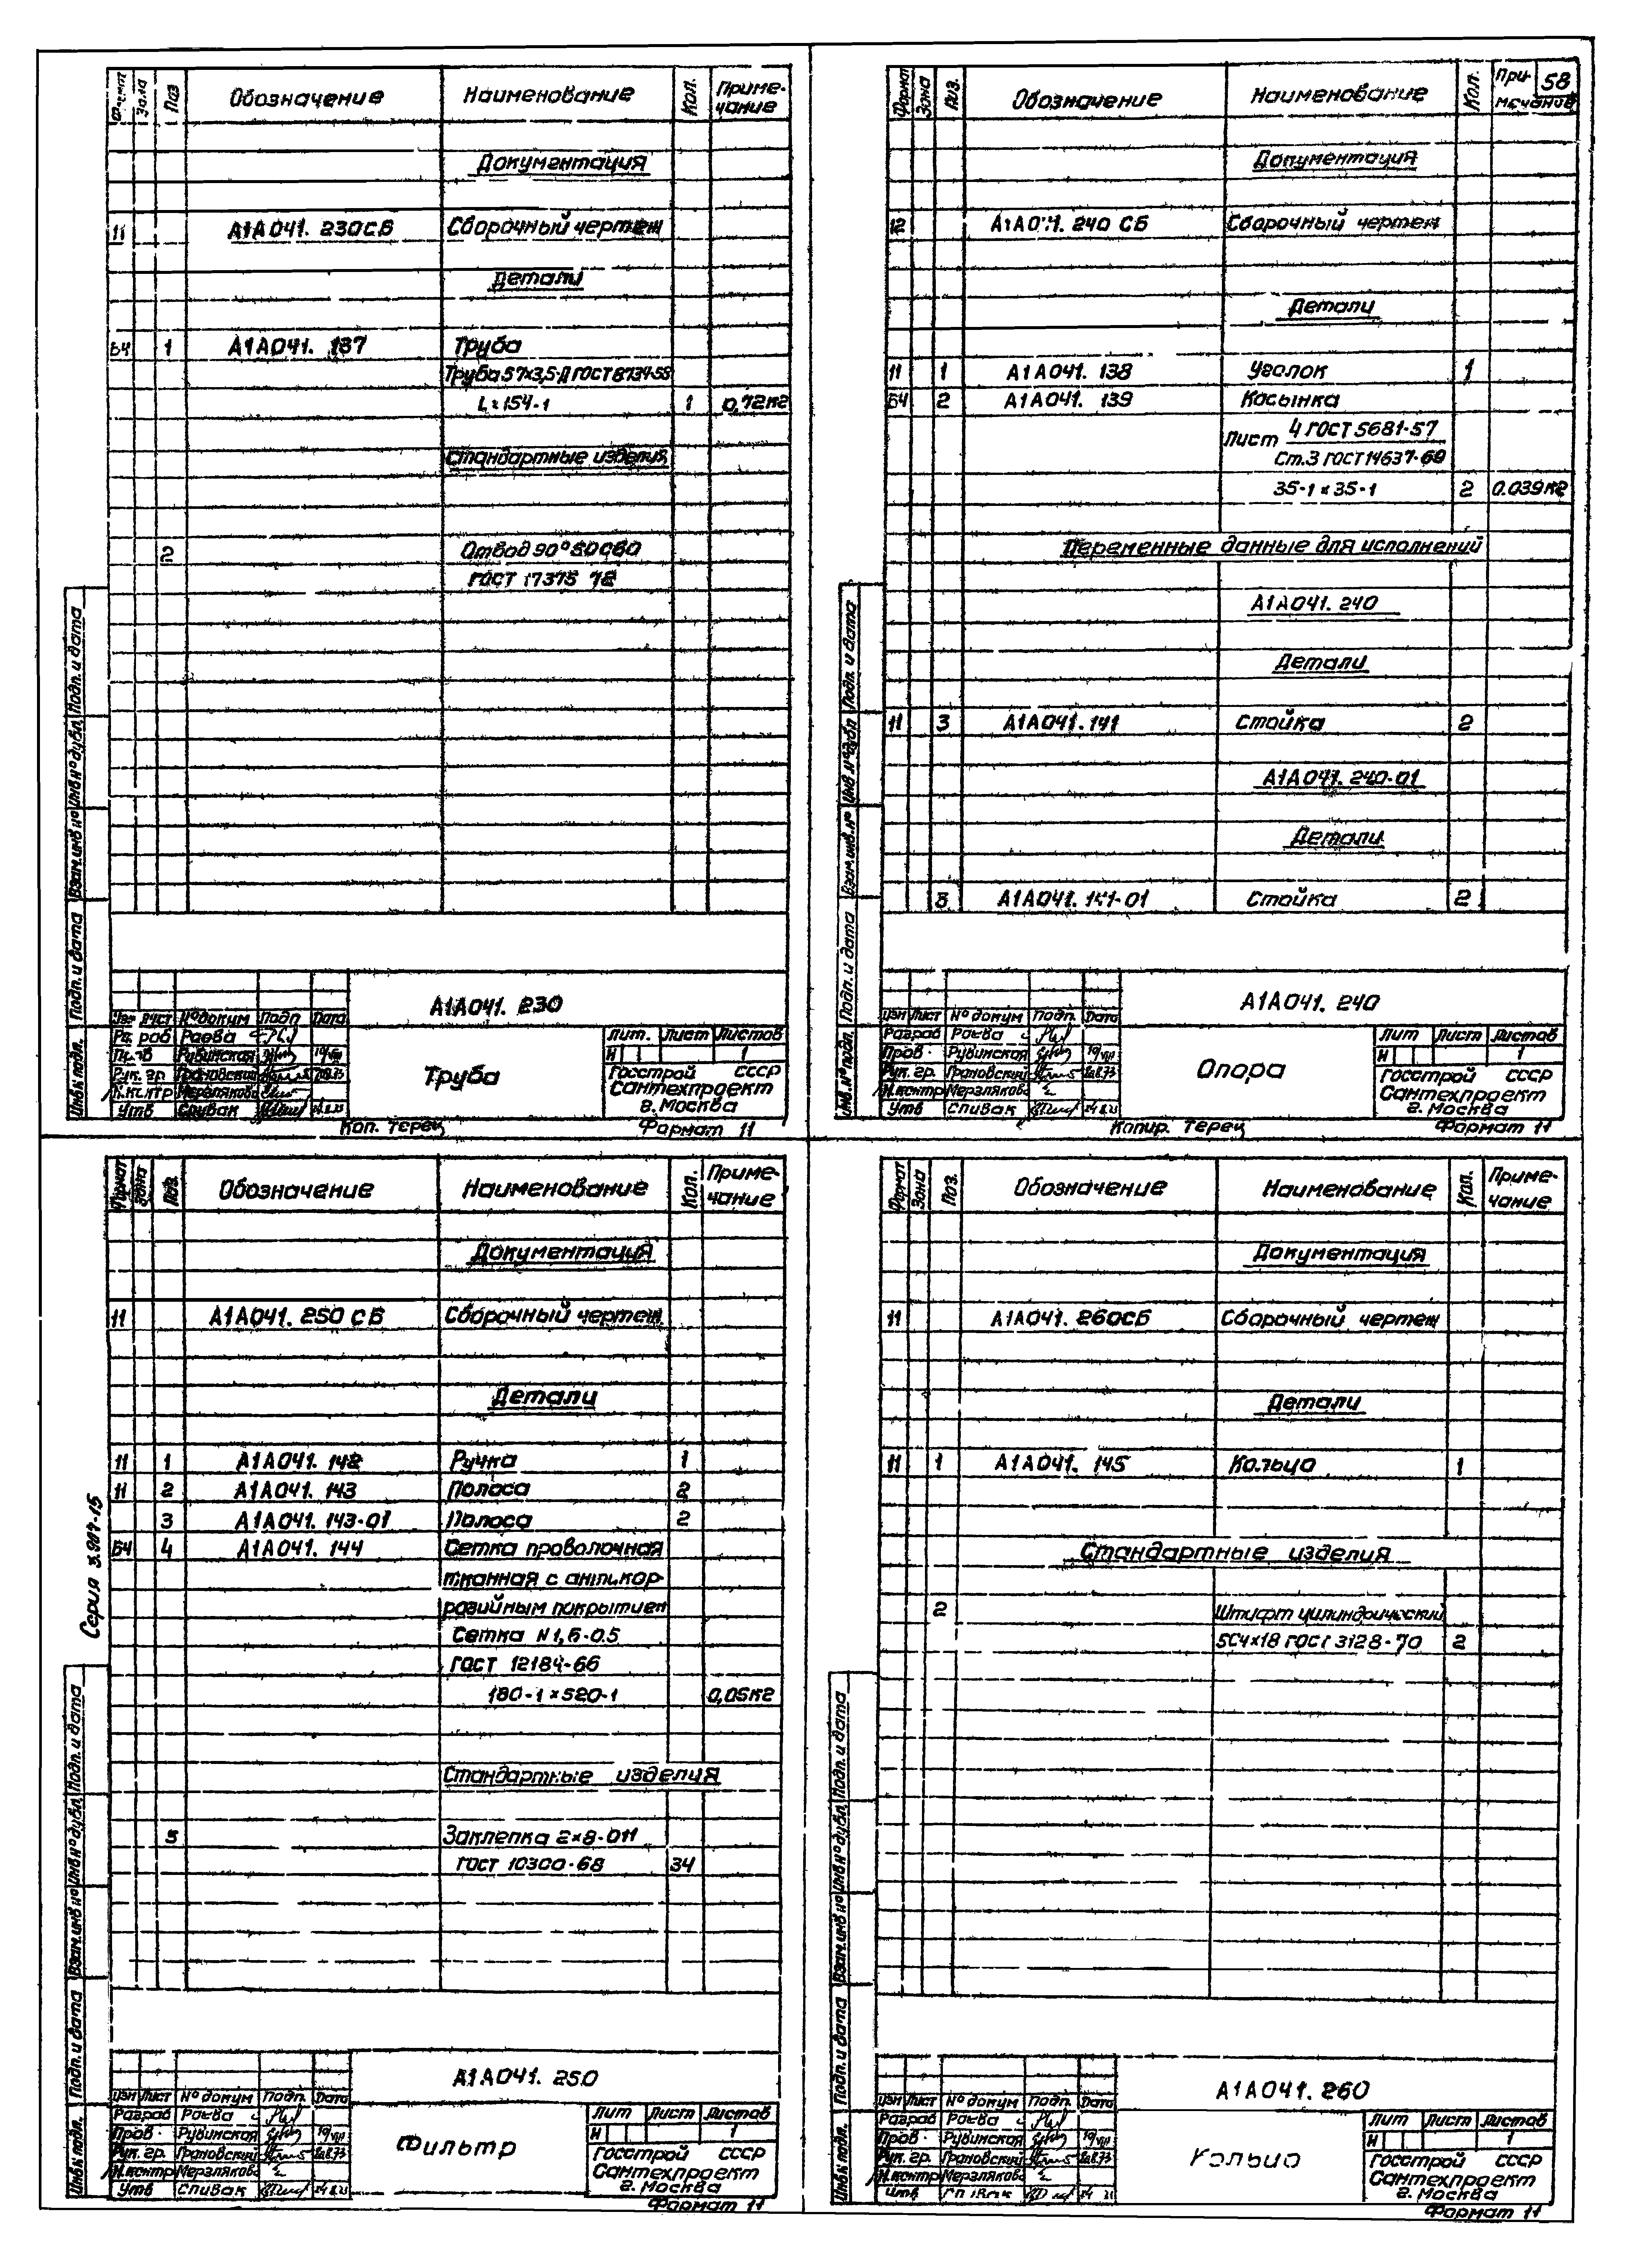 Формат Зона Поз Обозначение Наименование Кол. Приме-
чание
Документация
11 А1А041. 230СБ Сборочный чертеж
Детали
БЧ 1 А1А041. 137 Труба
Труба 57х3,5-Д ГОСТ 8734-58
L=154-1 1 0,72кг
Стандартные изделия
2 Отвод 90°
ГОСТ 17375 72
Подп. и дата
Инв № дубл.
Взам. инв №
Подп. и дата
Инв № подл.
А1А041. 230
Изм Лист № докум Подп Дата
Разраб Раева
Пров Рубинская 19 VIII
Рук. гр. Грановский 20.8.73
Н.контр Мерзлякова
Утв Спивак 24.8.73
Труба
Лит. Лист Листов
И 1
Госстрой СССР
Сантехпроект
г. Москва
Коп. Терец Формат 11
58
Формат Зона Поз. Обозначение Наименование Кол. При-
мечание
Документация
12 А1А041. 240 СБ Сборочный чертеж
Детали
11 1 А1А041. 138 Уголок 1
БЧ 2 А1А041. 139 Косынка
Лист 4 ГОСТ 5681-57
Ст.3 ГОСТ 14637-69
35-1 х 35-1 2 0.039кг
Переменные данные для исполнений
А1А041. 240
Детали
11 3 А1А041. 141 Стойка 2
А1А041. 240-01
Детали
А1А041. 141-01 Стойка 2
Подп. и дата
Инв № дубл
Взам. инв. №
Подп. и дата
Инв. № подл.
А1А041. 240
Изм Лист № докум Подп. Дата
Разраб Раева
Пров. Рубинская 19 VIII
Рук. гр. Грановский 20.8.73
Н.контр Мерзлякова
Утв Спивак 24.8.73
Опора
Лит Лист Листов
И 1
Госстрой СССР
Сантехпроект
г. Москва
Копир. Терец Формат 11
Формат Зона Поз. Обозначение Наименование Кол. Приме-
чание
Документация
11 А1А041. 250 СБ Сборочный чертеж
Детали
11 1 А1А041. 142 Ручка 1
11 2 А1А041. 143 Полоса 2
3 А1А041. 143-01 Полоса 2
БЧ 4 А1А041. 144 Сетка проволочная
тканная с антикор-
розийным покрытием
Сетка N 1,6-0.5
ГОСТ 12184-66
180-1 х 520-1 0,05кг
Стандартные изделия
5 Заклепка 2х8-011
ГОСТ 10300-68 34
Серия 3.904-15
Подп. и дата
Инв № дубл.
Взам. инв №
Подп. и дата
Инв № подл.
А1А041. 250
Изм Лист № докум Подп. Дата
Разраб Раева
Пров. Рубинская 19 VIII
Рук. гр. Грановский 20.8.73
Н.контр Мерзлякова
Утв Спивак 24.8.73
Фильтр
Лит Лист Листов
И 1
Госстрой СССР
Сантехпроект
г. Москва
Формат 11
Формат Зона Поз. Обозначение Наименование Кол. Приме-
чание
Документация
11 А1А041. 260СБ Сборочный чертеж
Детали
11 1 А1А041. 145 Кольцо 1
Стандартные изделия
2 Штифт цилиндрический
5С4х18 ГОСТ 3128-70 2
Подп. и дата
Инв № дубл.
Взам. инв №
Подп. и дата
Инв № подл.
А1А041. 260
Изм Лист № докум Подп. Дата
Разраб Раева
Пров. Рубинская 19 VIII
Рук. гр. Грановский 20.8.73
Н.контр Мерзлякова
Утв Спивак
Кольцо
Лит Лист Листов
И 1
Госстрой СССР
Сантехпроект
г. Москва
Формат 11